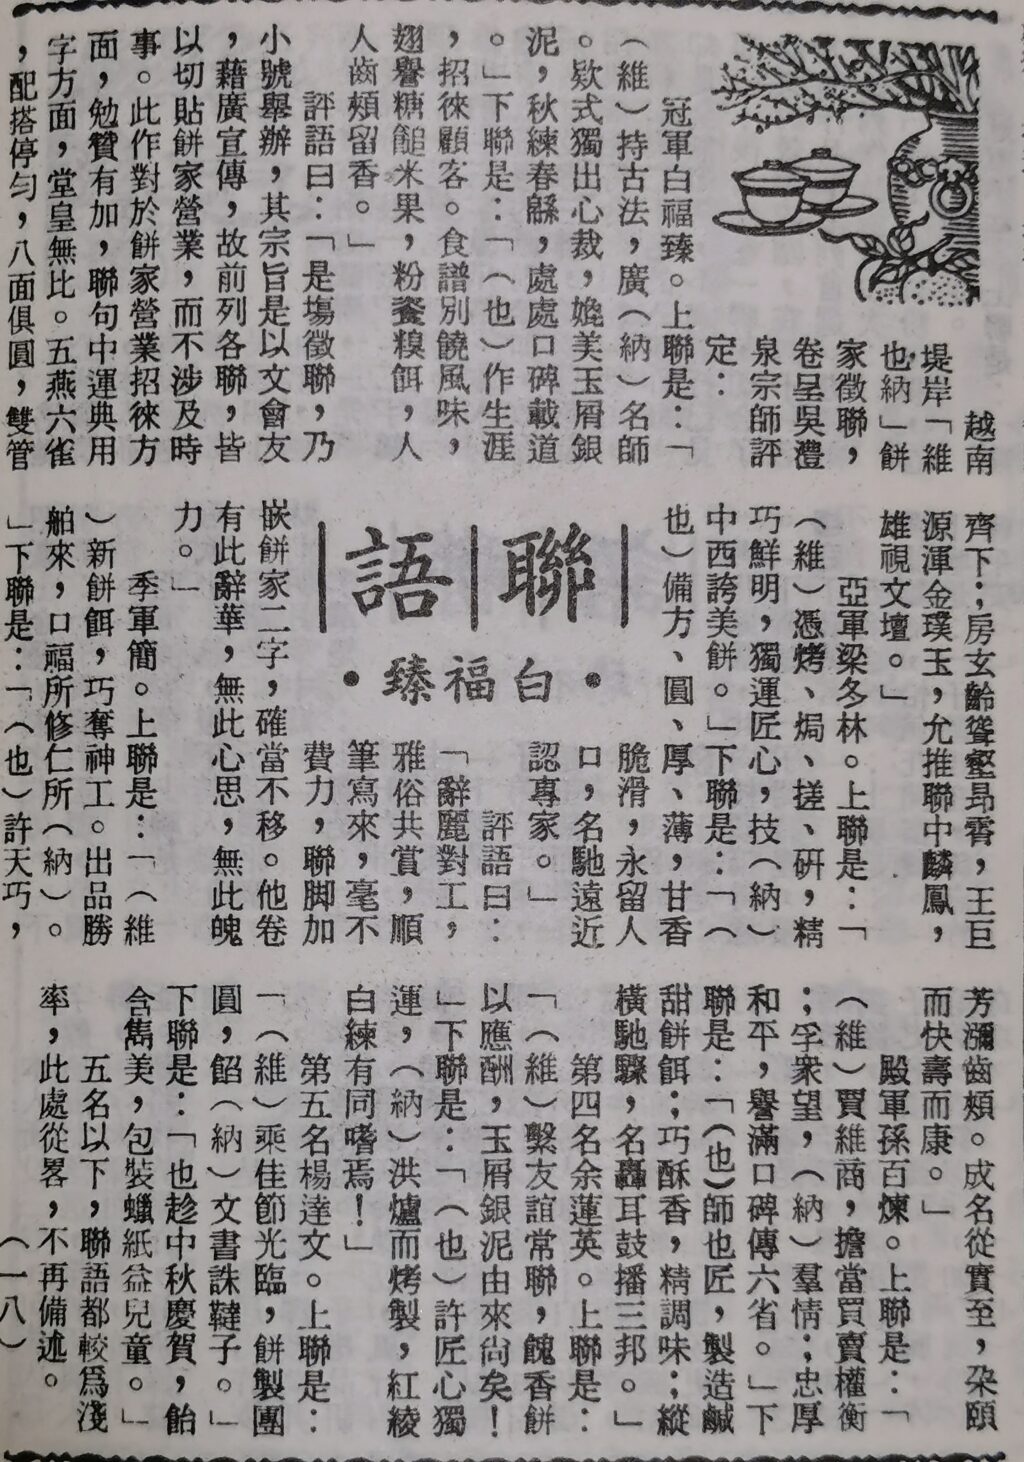 聯語
•白福臻•
越南
堤岸「維
也納」餅
家徵聯，
卷呈吳澧
泉宗師評
定：
冠軍白福臻。上聯是：「
（維）持古法，廣（納）名師
。欵式獨出心裁，媲美玉屑銀
泥，秋練春緜，處處口碑載道
。」下聯是：「（也）作生涯
，招徠顧客。食譜別饒風味，
翅譽糖䭔米果，粉餈糗餌，人
人齒頰留香。」
評語曰：「是塲徵聯，乃
小號舉辦，其宗旨是以文會友
，藉廣宣傳，故前列各聯，皆
以切貼餅家營業，而不涉及時
事。此作對於餅家營業招徠方
面，勉贊有加，聯句中運典用
字方面，堂皇無比。五燕六雀
，配搭停勻，八面俱圓，雙管
齊下；房玄齡聳壑昂霄，王巨
源渾金璞玉，允推聯中麟鳳，
雄視文壇。」
亞軍梁冬林。上聯是：「
（維）憑烤、焗、搓、研，精
巧鮮明，獨運匠心，技（納）
中西誇美餅。」下聯是：「（
也）備方、圓、厚、薄，甘香
脆滑，永留人
口，名馳遠近
認專家。」
評語曰：
「辭麗對工，
雅俗共賞，順
筆寫來，毫不
費力，聯脚加
嵌餅家二字，確當不移。他卷
有此辭華，無此心思，無此魄
力。」
季軍簡。上聯是：「（維
）新餅餌，巧奪神工。出品勝
舶來，口福所修仁所（納）。
」下聯是：「（也）許天巧，
芳瀰齒頰。成名從實至，朶頤
而快壽而康。」
殿軍孫百煉。上聯是：「
（維）賈維商，擔當買賣權衡
；孚衆望，（納）羣情；忠厚
和平，譽滿口碑傳六省。」下
聯是：「（也）師也匠，製造鹹
甜餅餌；巧酥香，精調味；縱
橫馳驟，名轟耳鼓播三邦。」
第四名余蓮英。上聯是：
「（維）繫友誼常聯，餽香餅
以應酬，玉屑銀泥由來尙矣！
」下聯是：「（也）許匠心獨
運，（納）洪爐而烤製，紅綾
白練有同嗜焉！」
第五名楊達文。上聯是：
「（維）乘佳節光臨，餅製團
圓，餡（納）文書誅韃子。」
下聯是：「也趁中秋慶賀，飴
含雋美，包裝蠟紙益兒童。」
五名以下，聯語都較爲淺
率，此處從畧，不再備述。
（一八）